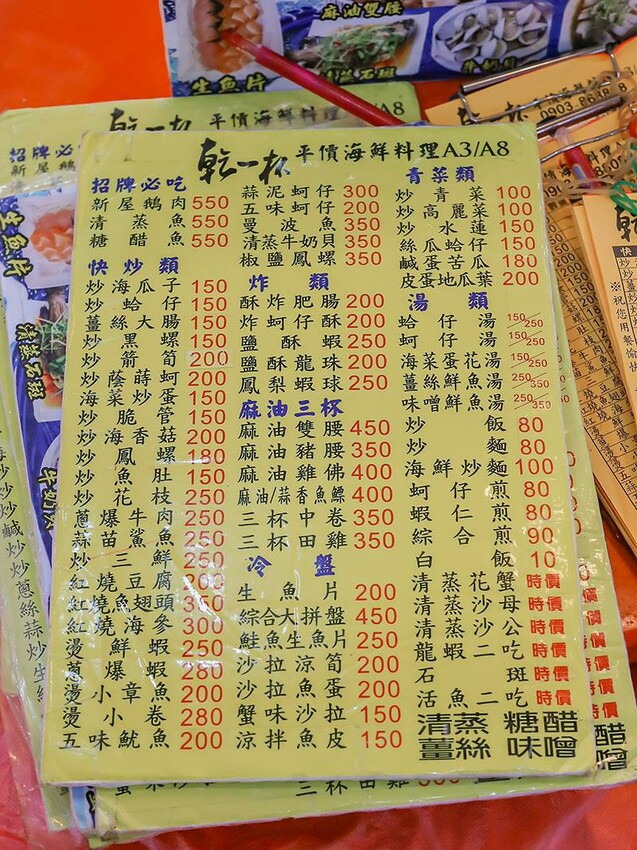 麻油雙腰
生魚片
清蒸石斑
牛奶貝
乾一杯 平價海鮮料理A3/A8
招牌必吃
新屋鵝肉 550
清蒸魚 550
糖醋魚 550
快炒類
炒海瓜子 150
炒蛤仔 150
薑絲大腸 150
炒黑螺 150
炒箭筍 200
炒蔭蒔蚵 200
海菜炒蛋 150
炒脆管 150
炒海香菇 200
炒鳳螺 180
炒魚肚 150
炒花枝 250
蔥爆牛肉 250
蒜苗鯊魚 250
炒三鮮 250
紅燒豆腐 200
紅燒魚翅頭 350
紅燒海參 300
燙鮮蝦 250
蔥爆蝦 280
燙小章魚 200
燙小卷 280
五味魷魚 200
蒜泥蚵仔 300
五味蚵仔 200
曼波魚 350
清蒸牛奶貝 350
椒鹽鳳螺 350
炸類
酥炸肥腸 200
酥炸蚵仔酥 200
鹽酥蝦 250
鹽酥龍珠 200
鳳梨蝦球 250
麻油三杯
麻油雙腰 450
麻油豬腰 350
麻油雞佛 400
麻油/蒜香魚鰾 400
三杯中卷 350
三杯田雞 350
冷盤
生魚片 200
綜合大拼盤 450
鮭魚生魚片 250
沙拉涼筍 200
沙拉魚蛋 200
蟹味沙拉 150
涼拌魚皮 150
青菜類
炒青菜 100
炒高麗菜 100
炒水蓮 150
絲瓜蛤仔 150
鹹蛋苦瓜 180
皮蛋地瓜葉 200
湯類
蛤仔湯 150/250
蚵仔湯 150/250
海菜蛋花湯 150/250
薑絲鮮魚湯 250/350
味噌鮮魚湯 250/350
炒飯 80
炒麵 80
海鮮炒麵 100
蚵仔煎 80
蝦仁煎 80
綜合煎 90
白飯 10
清蒸花蟹 時價
清蒸沙母 時價
清蒸沙公 時價
龍蝦二吃 時價
石斑 時價
活魚二吃 時價
清蒸 糖醋
薑絲 味噌